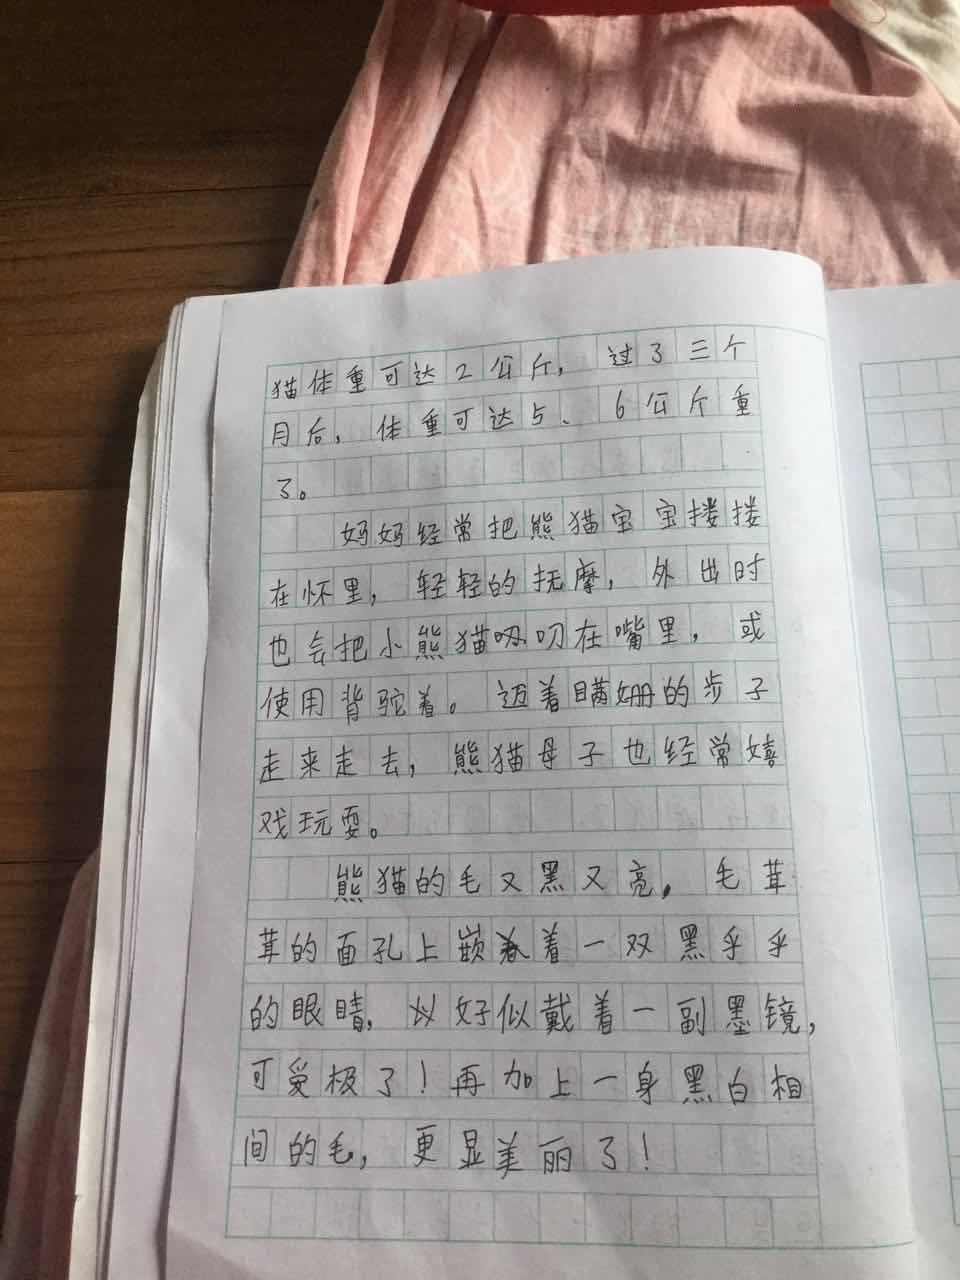 猫体重可达2公斤，过了三个
月后，体重可达5、6公斤重
了。
妈妈经常把熊猫宝宝搂搂
在怀里，轻轻的抚摩，外出时
也会把小熊猫叼在嘴里，或
使用背驼着。迈着蹒姗的步子
走来走去，熊猫母子也经常嬉
戏玩耍。
熊猫的毛又黑又亮，毛茸
茸的面孔上嵌着一双黑乎乎
的眼睛，好似戴着一副墨镜，
可爱极了！再加上一身黑白相
间的毛，更显美丽了！